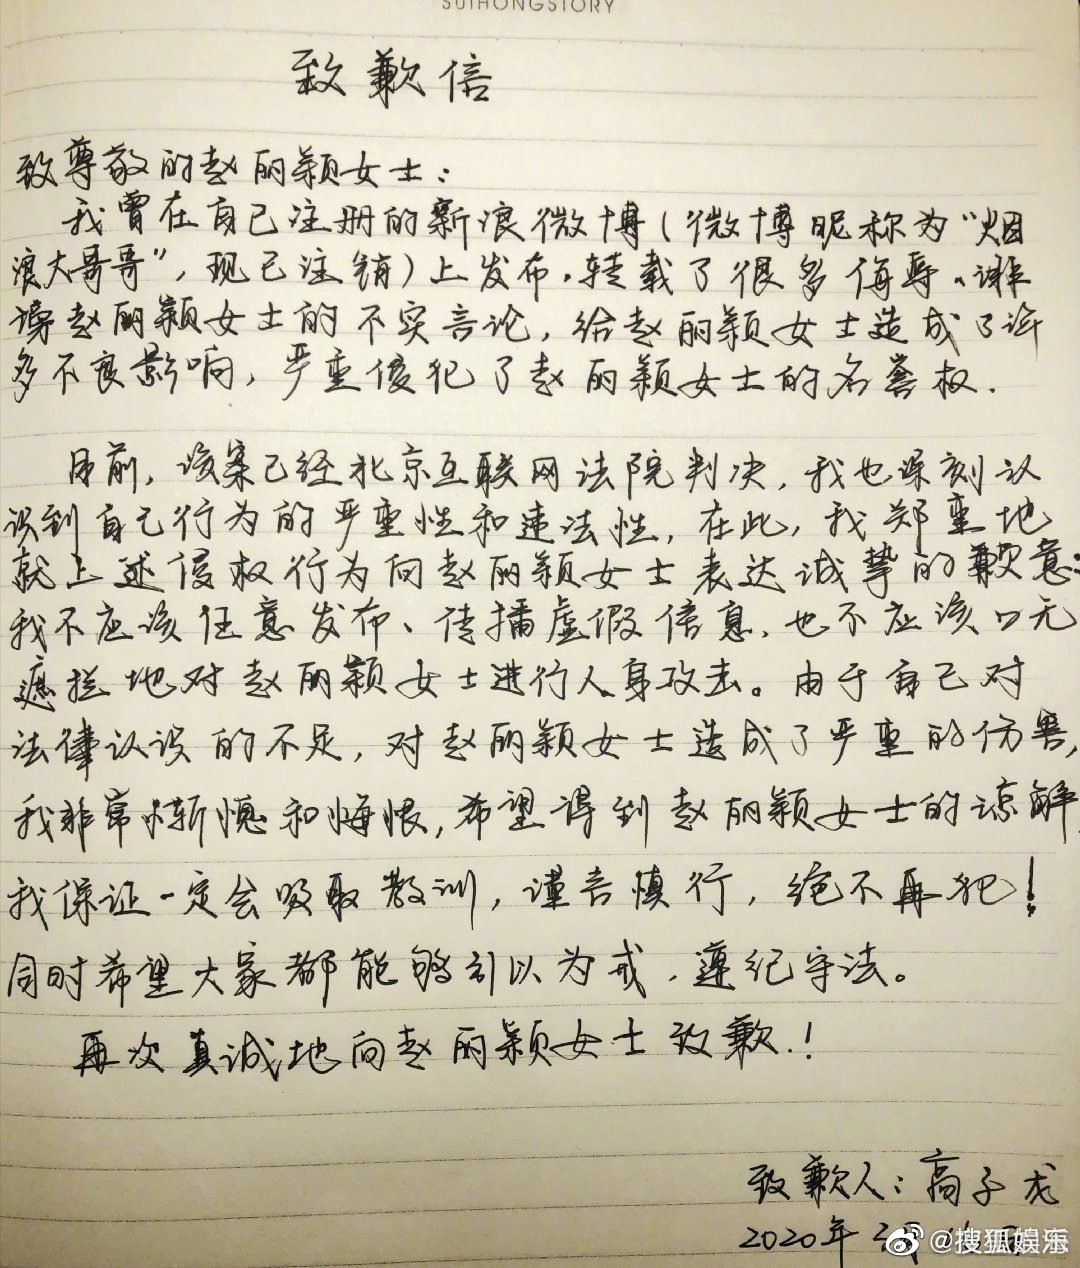 SUIHONGSTORY
致歉信
致尊敬的赵丽颖女士：
我曾在自己注册的新浪微博（微博昵称为“烟
浪大哥哥”，现已注销）上发布、转载了很多侮辱、诽
谤赵丽颖女士的不实言论，给赵丽颖女士造成了许
多不良影响，严重侵犯了赵丽颖女士的名誉权.
目前，该案已经北京互联网法院判决，我也深刻认
识到自己行为的严重性和违法性，在此，我郑重地
就上述侵权行为向赵丽颖女士表达诚挚的歉意：
我不应该任意发布、传播虚假信息，也不应该口无
遮拦地对赵丽颖女士进行人身攻击。由于自己对
法律认识的不足，对赵丽颖女士造成了严重的伤害，
我非常惭愧和悔恨，希望得到赵丽颖女士的谅解，
我保证一定会吸取教训，谨言慎行，绝不再犯！
同时希望大家都能够引以为戒，遵纪守法。
再次真诚地向赵丽颖女士致歉！
致歉人：高子龙
2020年
@搜狐娱乐